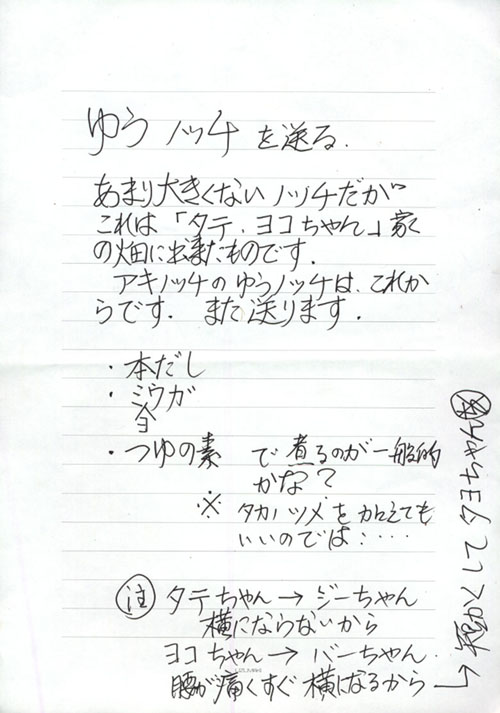 ゆうノッチを送る.
あまり大きくないノッチだが
これは「タテ.ヨコちゃん」家
の畑に出来たものです.
アキノッチのゆうノッチは、これか
らです. また送ります.
・本だし
・ミウガ
ョ
・つゆの素 で煮るのが一般的
かな?
※ タカノツメを加えても
いいのでは・・・・
注 タテちゃん→ジーちゃん
横にならないから
ヨコちゃん→バーちゃん.
腰が痛くすぐ横になるから
→短かくしてタヨちゃん家